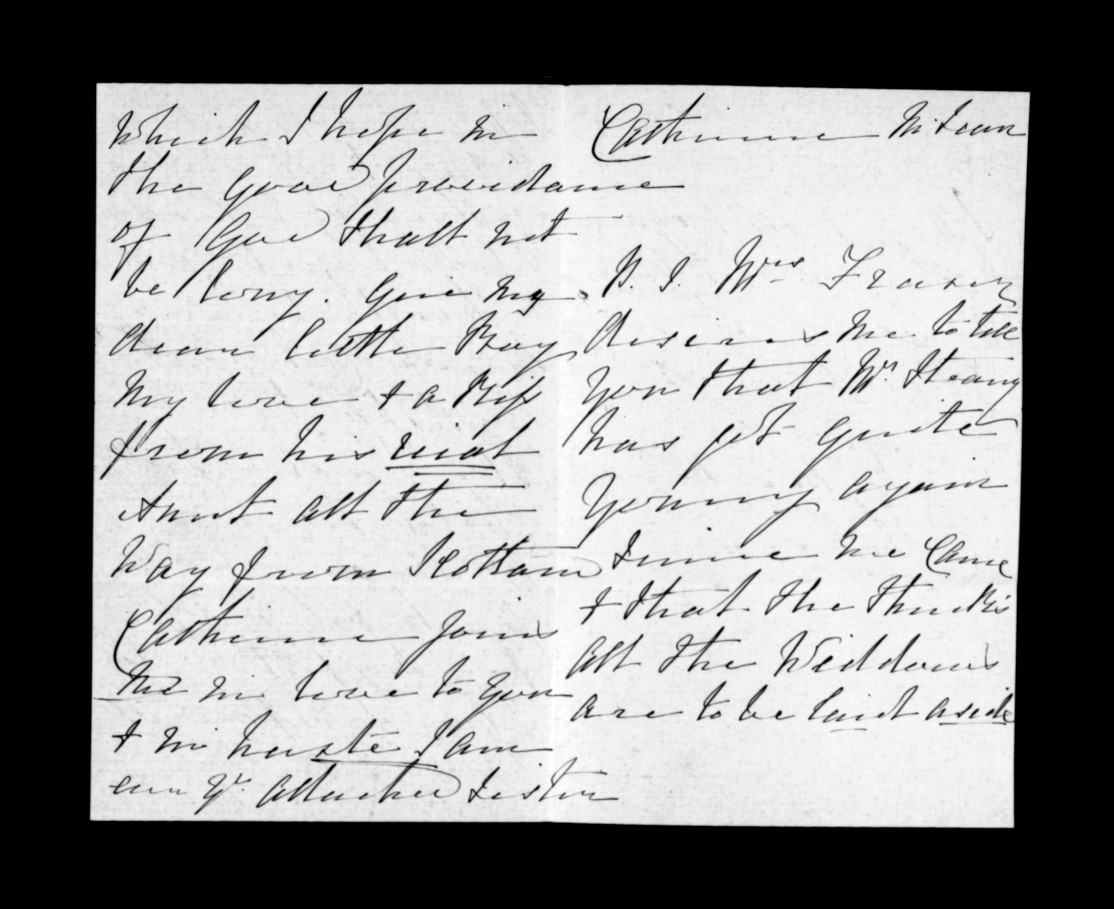 which I hope in
the good providance
of God shall not
be long. Give my
dear little Boy
My love & a Kiss
from his
Aunt all the
Way from Scotland
Catherine joins
me in love to you
& in haste I am
ever yr. attached Sister
Catherine McLean
P.S. Mrs Fraser
desires me to tell
you that Mr. Strang
has got quite
young again
since he came
& that she thinks
all the Widdows
are to be laid aside